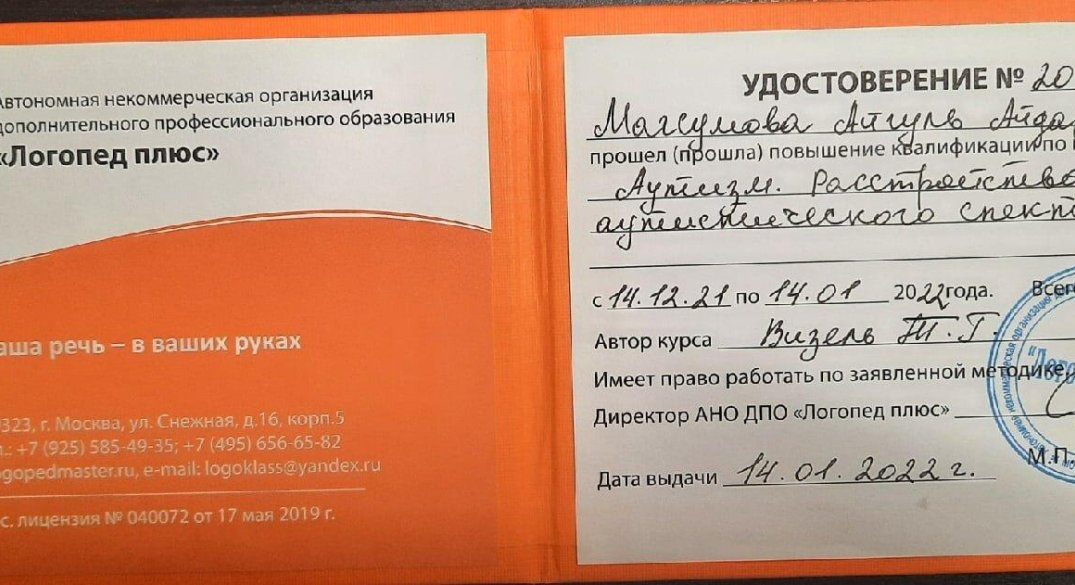 Автономная некоммерческая организация
дополнительного профессионального образования
«Логопед плюс»
ваша речь – в ваших руках
0323, г. Москва, ул. Снежная, д.16, корп.5
л.: +7 (925) 585-49-35; +7 (495) 656-65-82
logopedmaster.ru, e-mail: logoklass@yandex.ru
с. лицензия № 040072 от 17 мая 2019 г.
УДОСТОВЕРЕНИЕ № 20
Магсумова Айгуль Айда
прошел (прошла) повышение квалификации по
Аутизм. Расстройство
аутистического спект
с 14.12.21 по 14.01 2022 года. Всего
Автор курса Визель Т.Г.
Имеет право работать по заявленной методике,
Директор АНО ДПО «Логопед плюс»
М.П.
Дата выдачи 14.01.2022 г.